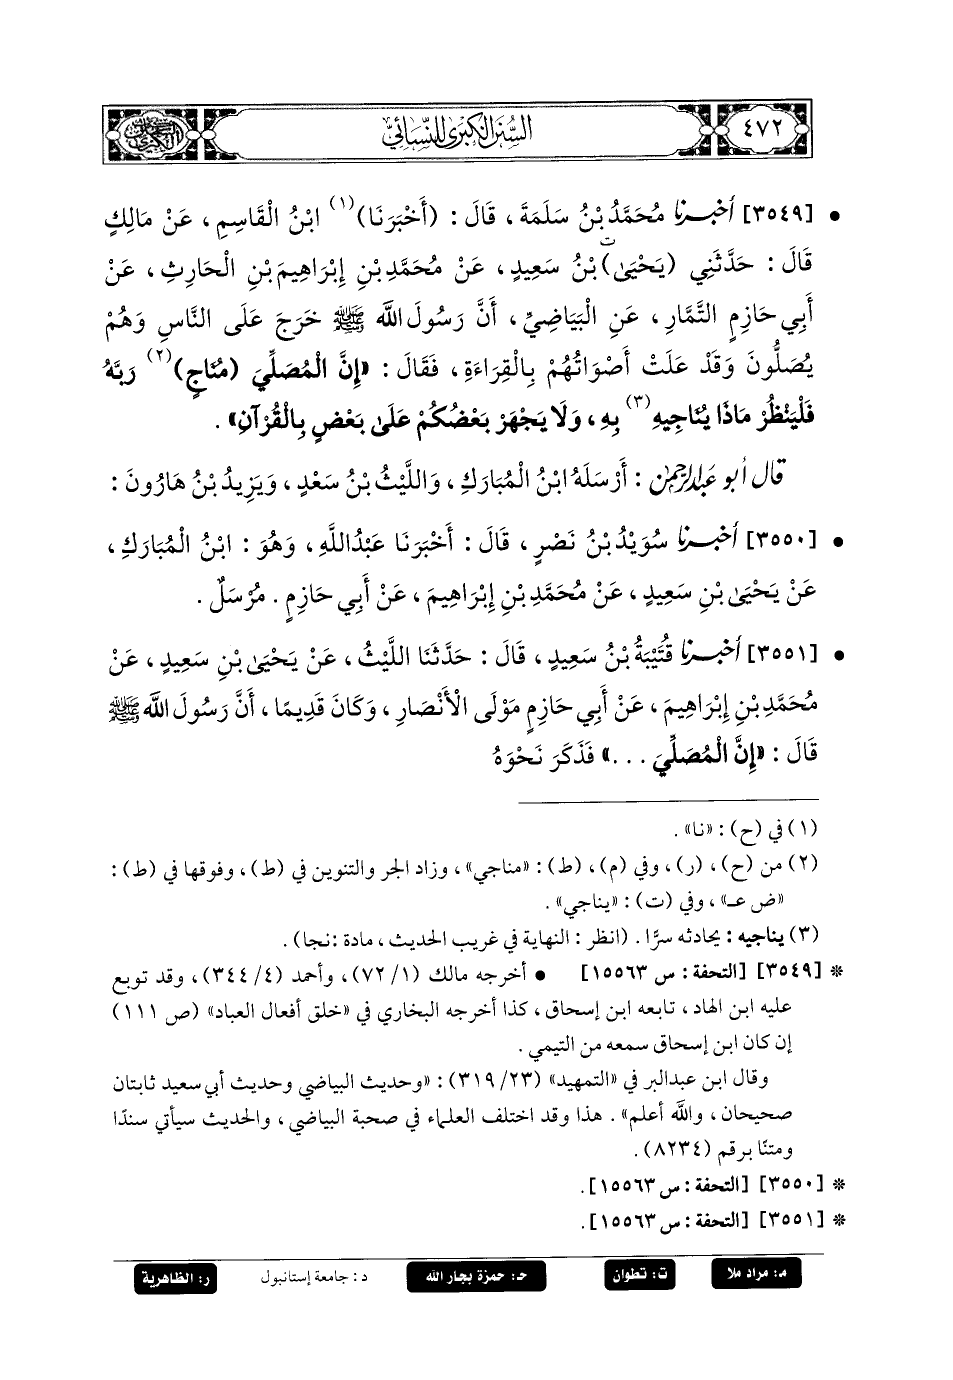 ٤٧٢
السُّنَنُ الكِبرى للنَّسَائي
• [٣٥٤٩] أَخْبَرنا مُحَمَّدُ بْنُ سَلَمَةَ ، قَالَ : (أَخْبَرَنَا)(١) ابْنُ الْقَاسِمِ ، عَنْ مَالِكٍ
قَالَ : حَدَّثَنِي (يَحْيَىٰ) بْنُ سَعِيدٍ ، عَنْ مُحَمَّدِ بْنِ إِبْرَاهِيمَ بْنِ الْحَارِثِ ، عَنْ
أَبِي حَازِمٍ التَّمَّارِ ، عَنِ الْبَيَاضِيِّ ، أَنَّ رَسُولَ اللَّه ﷺ خَرَجَ عَلَى النَّاسِ وَهُمْ
يُصَلُّونَ وَقَدْ عَلَتْ أَصْوَاتُهُمْ بِالْقِرَاءَةِ ، فَقَالَ : «إِنَّ الْمُصَلِّيَ (مُنَاجٍ)(٢) رَبَّهُ
فَلْيَنْظُرْ مَاذَا يُنَاجِيهِ(٣) بِهِ ، وَلَا يَجْهَرْ بَعْضُكُمْ عَلَىٰ بَعْضٍ بِالْقُرْآنِ» .
قال أبو عَبدالرحمن : أَرْسَلَهُ ابْنُ الْمُبَارَكِ ، وَاللَّيْثُ بْنُ سَعْدٍ ، وَيَزِيدُ بْنُ هَارُونَ :
• [٣٥٥٠] أَخْبَرنا سُوَيْدُ بْنُ نَصْرٍ ، قَالَ : أَخْبَرَنَا عَبْدُ اللَّهِ ، وَهُوَ : ابْنُ الْمُبَارَكِ ،
عَنْ يَحْيَىٰ بْنِ سَعِيدٍ ، عَنْ مُحَمَّدِ بْنِ إِبْرَاهِيمَ ، عَنْ أَبِي حَازِمٍ . مُرْسَلٌ .
• [٣٥٥١] أَخْبَرنا قُتَيْبَةُ بْنُ سَعِيدٍ ، قَالَ : حَدَّثَنَا اللَّيْثُ ، عَنْ يَحْيَىٰ بْنِ سَعِيدٍ ، عَنْ
مُحَمَّدِ بْنِ إِبْرَاهِيمَ ، عَنْ أَبِي حَازِمٍ مَوْلَى الْأَنْصَارِ ، وَكَانَ قَدِيمًا ، أَنَّ رَسُولَ اللَّه ﷺ
قَالَ : «إِنَّ الْمُصَلِّيَ . . .» فَذَكَرَ نَحْوَهُ
(١) في (ح) : «نا» .
(٢) من (ح) ، (ر) ، وفي (م) ، (ط) : «مناجي» ، وزاد الجر والتنوين في (ط) ، وفوقها في (ط) :
«ض عـ» ، وفي (ت) : «يناجي» .
(٣) يناجيه : يحادثه سرًّا . (انظر : النهاية في غريب الحديث ، مادة :نجا) .
* [٣٥٤٩] [التحفة : س ١٥٥٦٣] • أخرجه مالك (١/ ٧٢) ، وأحمد (٤/ ٣٤٤) ، وقد توبع
عليه ابن الهاد ، تابعه ابن إسحاق ، كذا أخرجه البخاري في «خلق أفعال العباد» (ص ١١١)
إن كان ابن إسحاق سمعه من التيمي .
وقال ابن عبدالبر في «التمهيد» (٢٣/ ٣١٩) : «وحديث البياضي وحديث أبي سعيد ثابتان
صحيحان ، واللَّه أعلم» . هذا وقد اختلف العلماء في صحبة البياضي ، والحديث سيأتي سندًا
ومتنًا برقم (٨٢٣٤) .
* [٣٥٥٠] [التحفة : س ١٥٥٦٣].
* [٣٥٥١] [التحفة : س ١٥٥٦٣].
م: مراد ملا ت: تطوان حـ: حمزة بجار الله د : جامعة إستانبول ر: الظاهرية